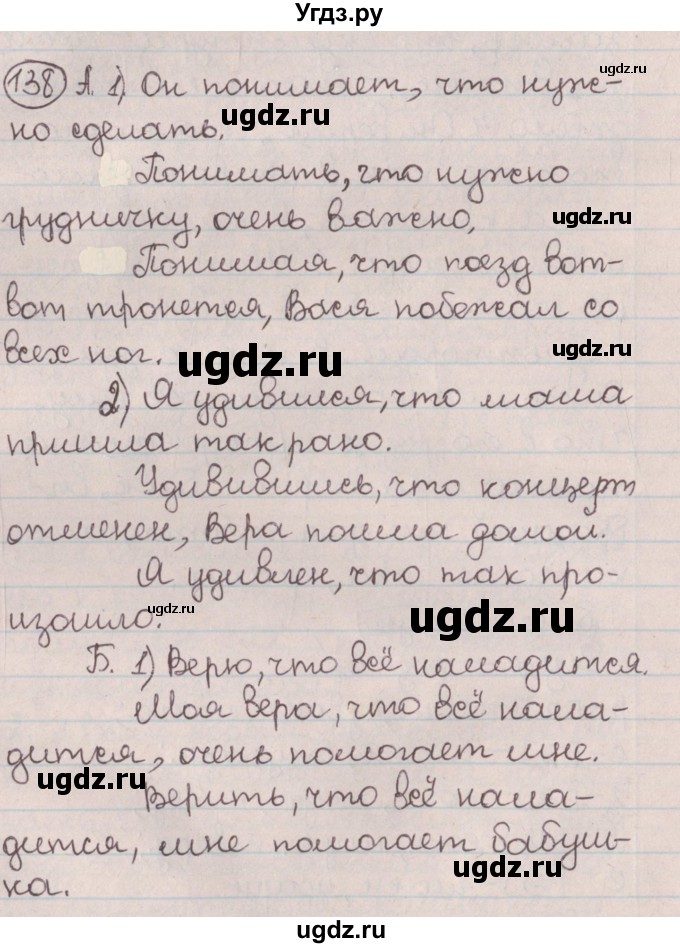 Угдз.ру
138 А. 1) Он понимает, что нуж-
но сделать.
Понимать, что нужно
грудничку, очень важно.
Понимая, что поезд вот-
вот тронется, Вася побежал со
всех ног.
2) Я удивился, что маша
пришла так рано.
Удивившись, что концерт
отменен, Вера пошла домой.
Я удивлен, что так про-
изошло.
Б. 1) Верю, что всё наладится.
Моя вера, что всё нала-
дится, очень помогает мне.
Верить, что всё нала-
дится, мне помогает бабуш-
ка.
ugdz.ru
ugdz.ru
ugdz.ru
ugdz.ru
ugdz.ru
ugdz.ru
ugdz.ru
ugdz.ru
ugdz.ru
ugdz.ru
ugdz.ru